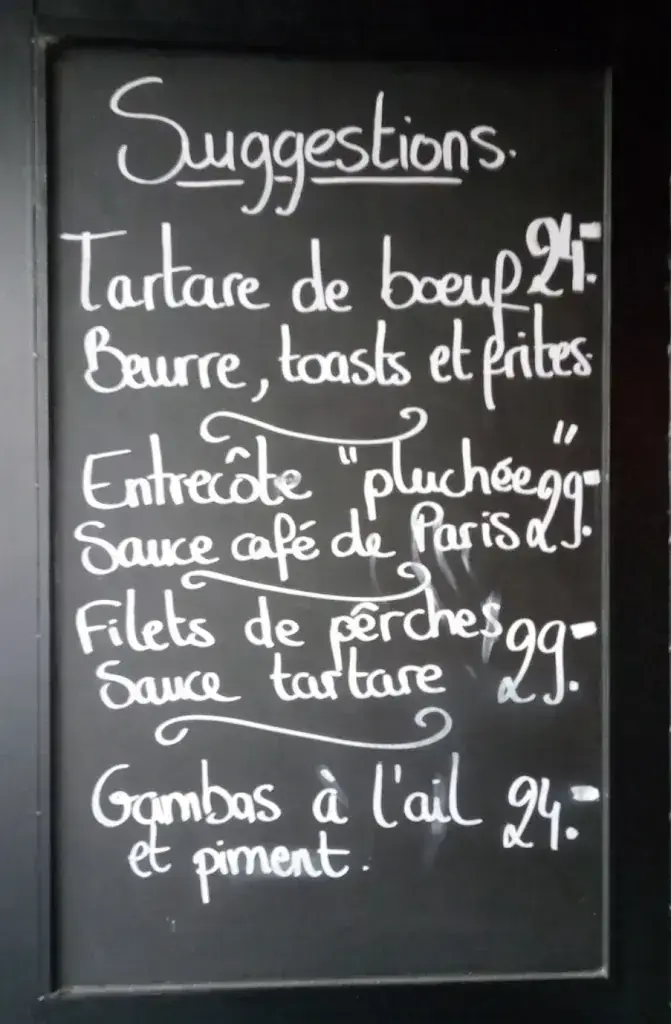 Suggestions.
Tartare de bœuf 24.-
Beurre, toasts et frites.
Entrecôte "pluchée"
Sauce café de Paris 29.-
Filets de pêrches
Sauce tartare 29.-
Gambas à l'ail 24.-
et piment.